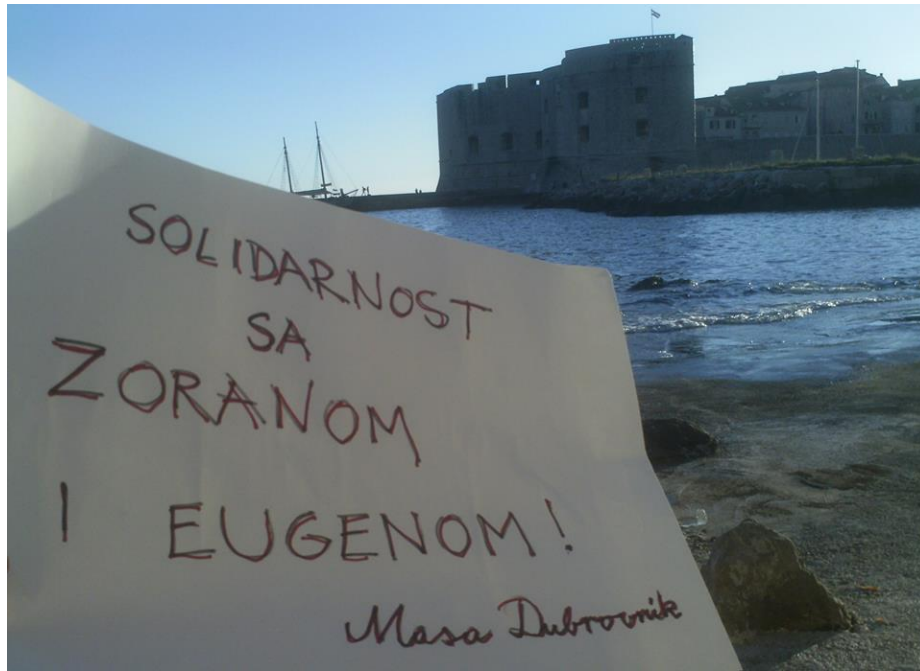 SOLIDARNOST
SA
ZORANOM
I EUGENOM!
Masa Dubrovnik